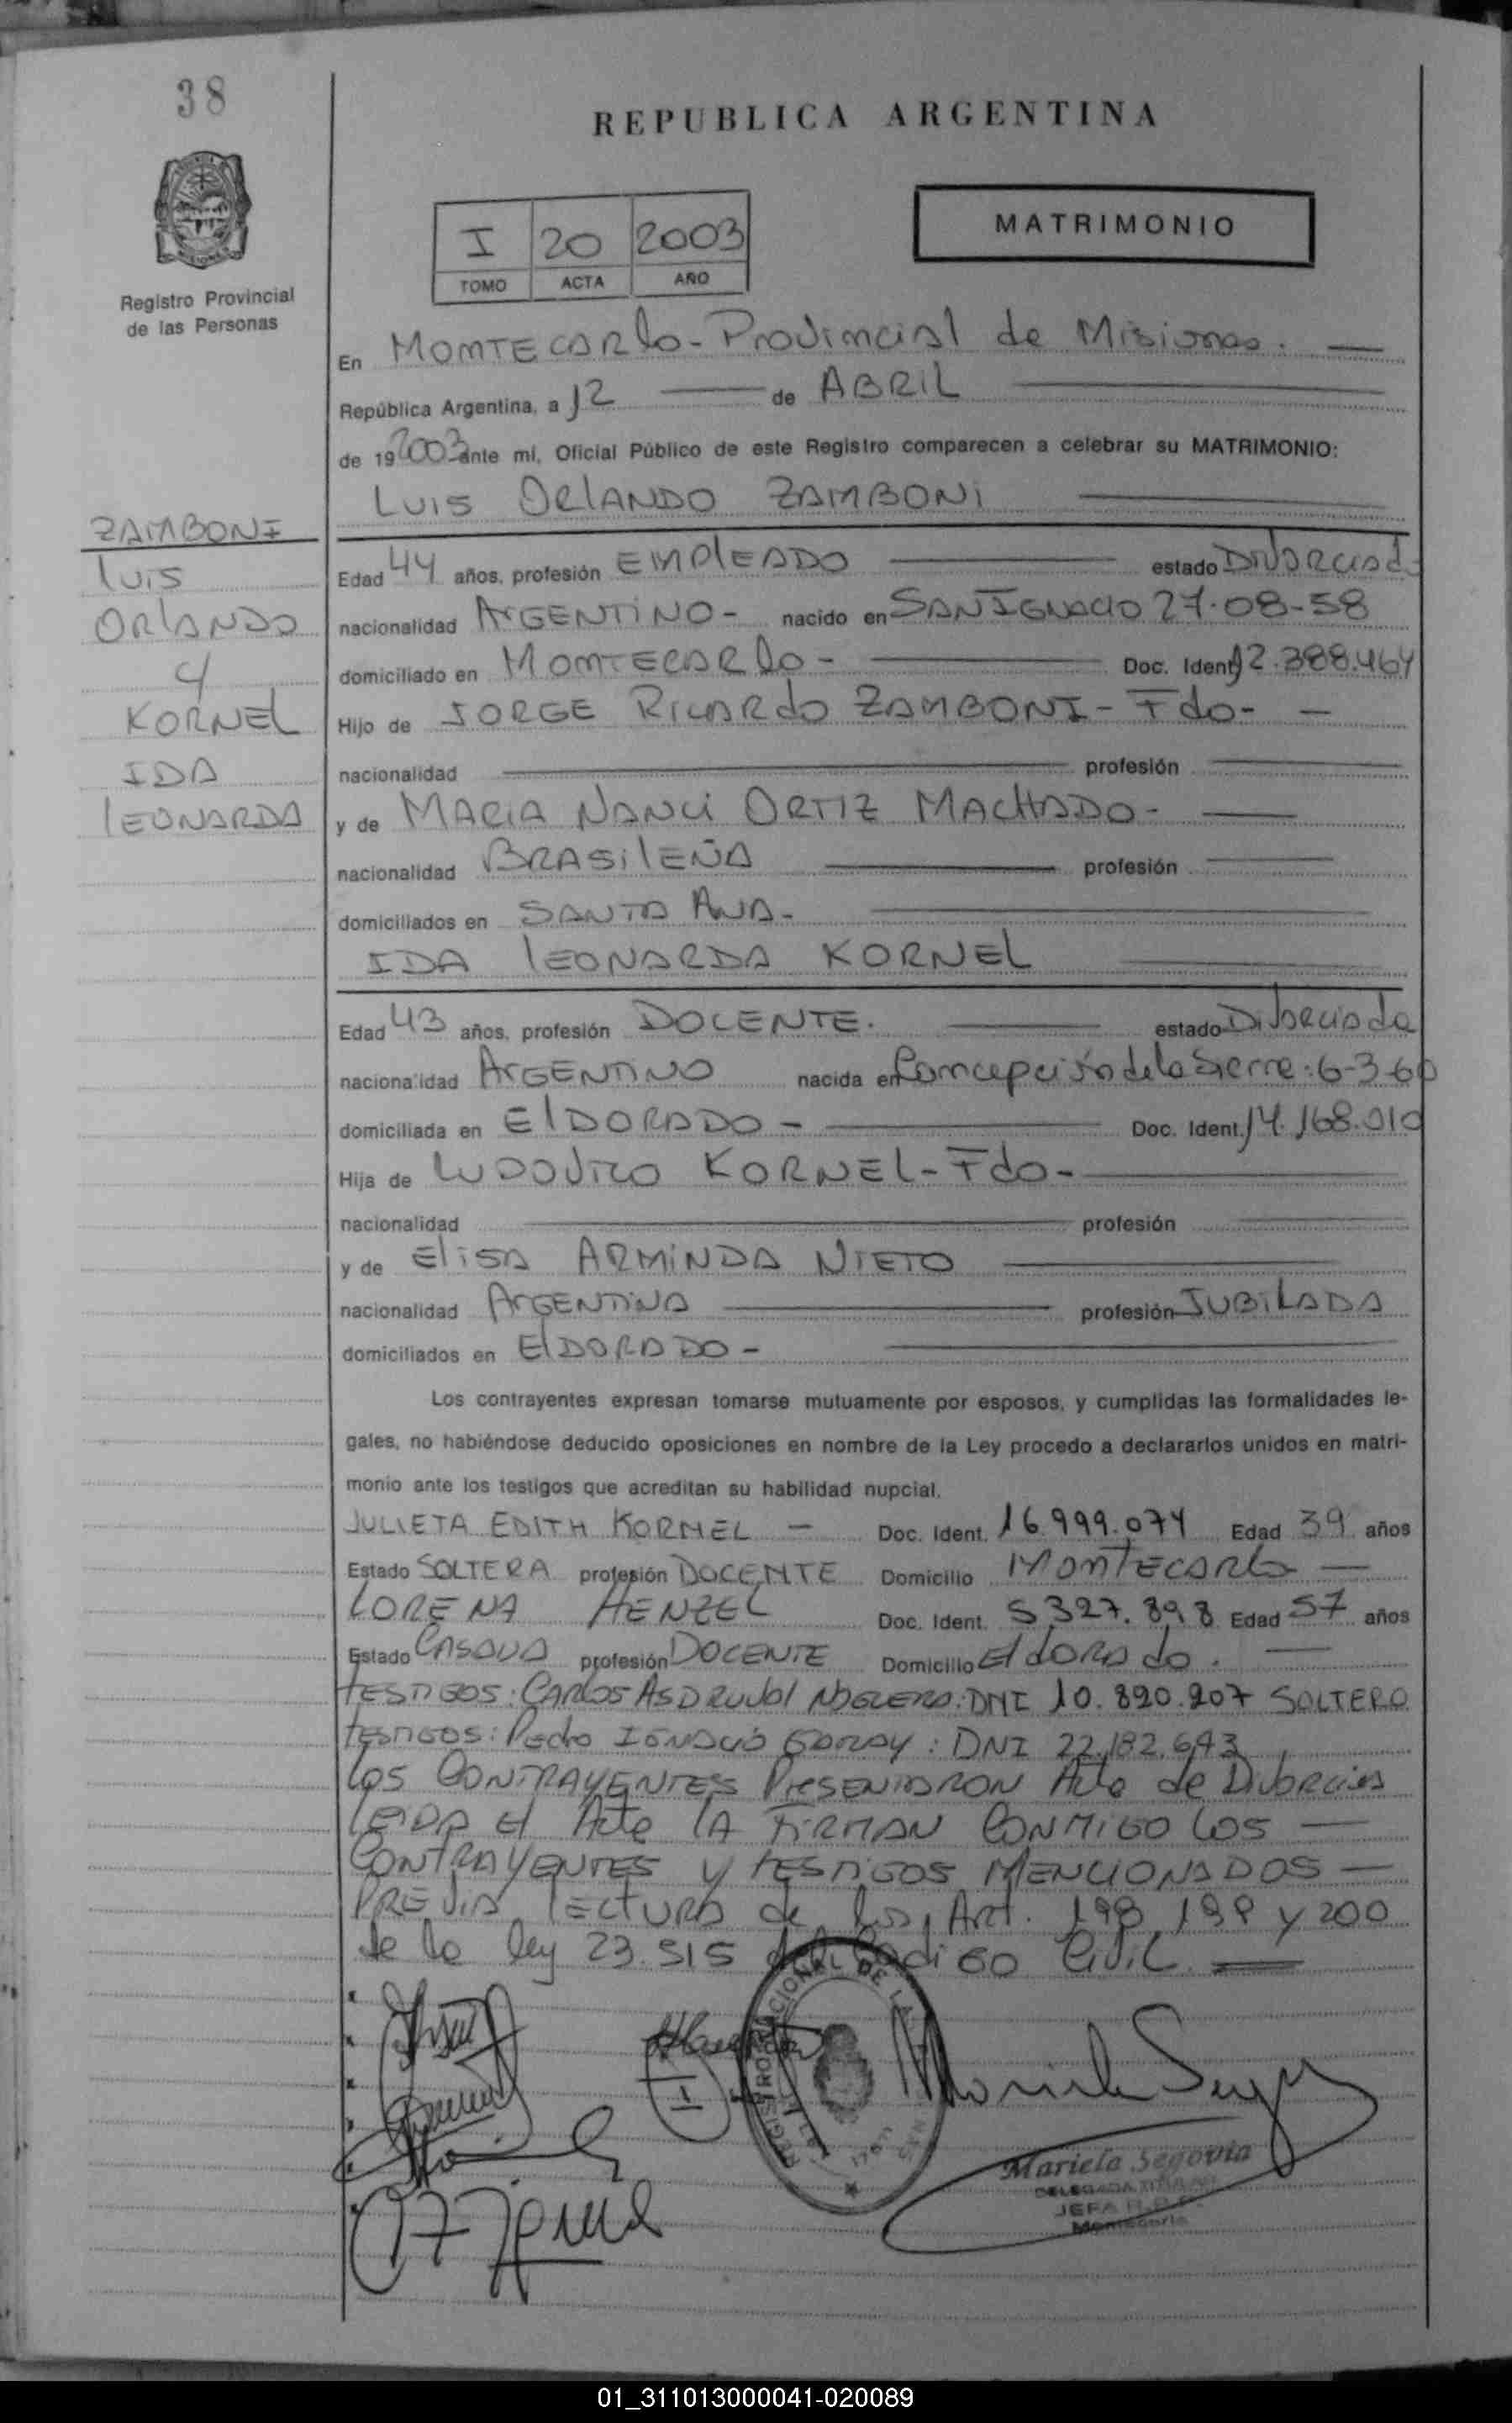 38
REPUBLICA ARGENTINA
I 20 2003
TOMO ACTA AÑO
MATRIMONIO
Registro Provincial
de las Personas
En MONTECARlo - Provincial de Misiones. —
República Argentina, a 12 — de ABRIL
de 19 2003 ante mí, Oficial Público de este Registro comparecen a celebrar su MATRIMONIO:
LUIS ORLANDO ZAMBONI
ZAMBONI
LUIS
ORLANDO
Y
KORNEL
IDA
LEONARDA
Edad 44 años, profesión EMPLEADO estado Divorciado
nacionalidad ARGENTINO - nacido en SAN IGNACIO 27-08-58
domiciliado en MONTECARlo - Doc. Ident. 12.388.464
Hijo de JORGE RICARdo ZAMBONI - Fdo - —
nacionalidad — profesión —
y de MARIA NANCI ORTIZ MACHADO - —
nacionalidad BRASILEÑA — profesión —
domiciliados en SANTA ANA -
IDA LEONARDA KORNEL
Edad 43 años, profesión DOCENTE. estado Divorciada
nacionalidad ARGENTINO nacida en Concepción de la Sierra: 6-3-60
domiciliada en ElDORADO - Doc. Ident. 14.168.010
Hija de LUDOVICO KORNEL - Fdo -
nacionalidad — profesión
y de ElisA ARMINDA NIETO
nacionalidad ARGENTINA — profesión JUBILADA
domiciliados en ElDORADO -
Los contrayentes expresan tomarse mutuamente por esposos, y cumplidas las formalidades le-
gales, no habiéndose deducido oposiciones en nombre de la Ley procedo a declararlos unidos en matri-
monio ante los testigos que acreditan su habilidad nupcial.
JULIETA EDITH KORNEL — Doc. Ident. 16.999.074 Edad 39 años
Estado SOLTERA profesión DOCENTE Domicilio MONTECARLo —
LORENA HENZEL Doc. Ident. 5.327.898 Edad 57 años
Estado CASADA profesión DOCENTE Domicilio El doRAdo. —
TESTIGOS: CARLOS ASDRUbAl NOGUERA: DNI 10.820.207 SOLTERO
TESTIGOS: Pedro IGNACIO GARAY: DNI 22.182.643
LOS CONTRAYENTES PRESENTARON Acta de Divorcios
LEIDA El Acta LA FIRMAN CONMIGO LOS —
CONTRAYENTES Y TESTIGOS MENCIONADOS —
PREVIA LECTURA de los Art. 198, 199 y 200
de la ley 23.515 del Codigo Civil. —
Mariela Segovia
JEFA
Montecarlo
01_311013000041-020089